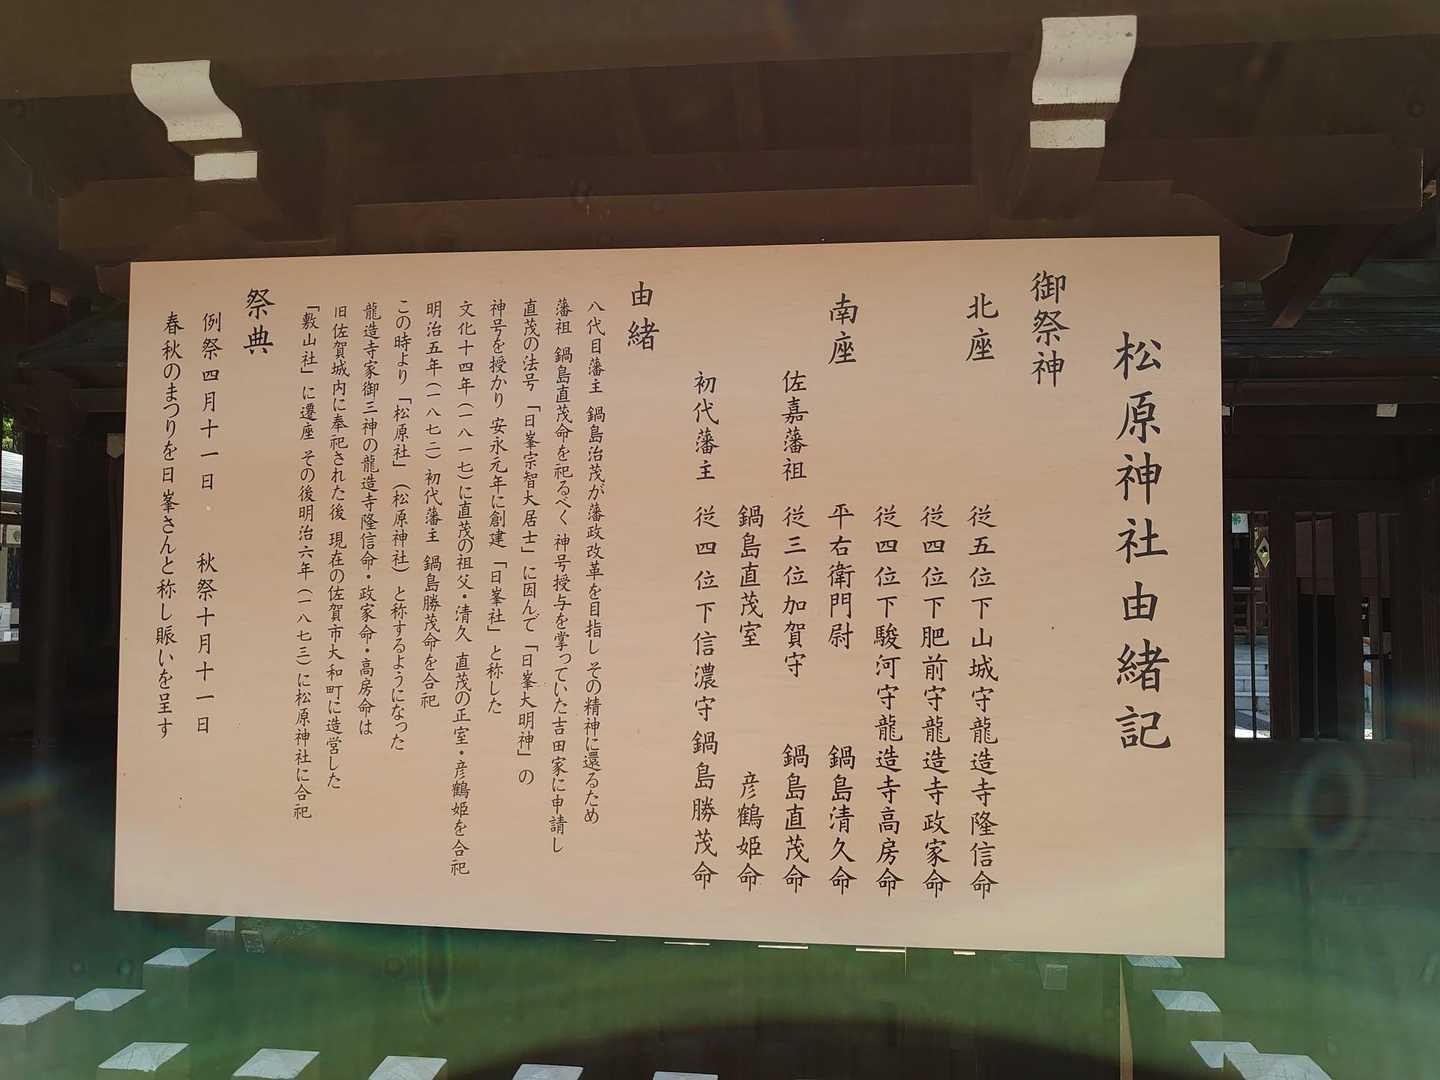 松原神社由緒記
御祭神
北座
従五位下山城守龍造寺隆信命
従四位下肥前守龍造寺政家命
従四位下駿河守龍造寺高房命
南座
平右衛門尉 鍋島清久命
佐嘉藩祖 従三位加賀守 鍋島直茂命
鍋島直茂室 彦鶴姫命
初代藩主 従四位下信濃守鍋島勝茂命
由緒
八代目藩主 鍋島治茂が藩政改革を目指し その精神に還るため
藩祖 鍋島直茂命を祀るべく 神号授与を掌っていた吉田家に申請し
直茂の法号「日峯宗智大居士」に因んで「日峯大明神」の
神号を授かり 安永元年に創建「日峯社」と称した
文化十四年(一八一七)に直茂の祖父・清久 直茂の正室・彦鶴姫を合祀
明治五年(一八七二)初代藩主 鍋島勝茂命を合祀
この時より「松原社」(松原神社)と称するようになった
龍造寺家御三神の龍造寺隆信命・政家命・高房命は
旧佐賀城内に奉祀された後 現在の佐賀市大和町に造営した
「敷山社」に遷座 その後明治六年(一八七三)に松原神社に合祀
祭典
例祭四月十一日 秋祭十月十一日
春秋のまつりを日峯さんと称し賑いを呈す